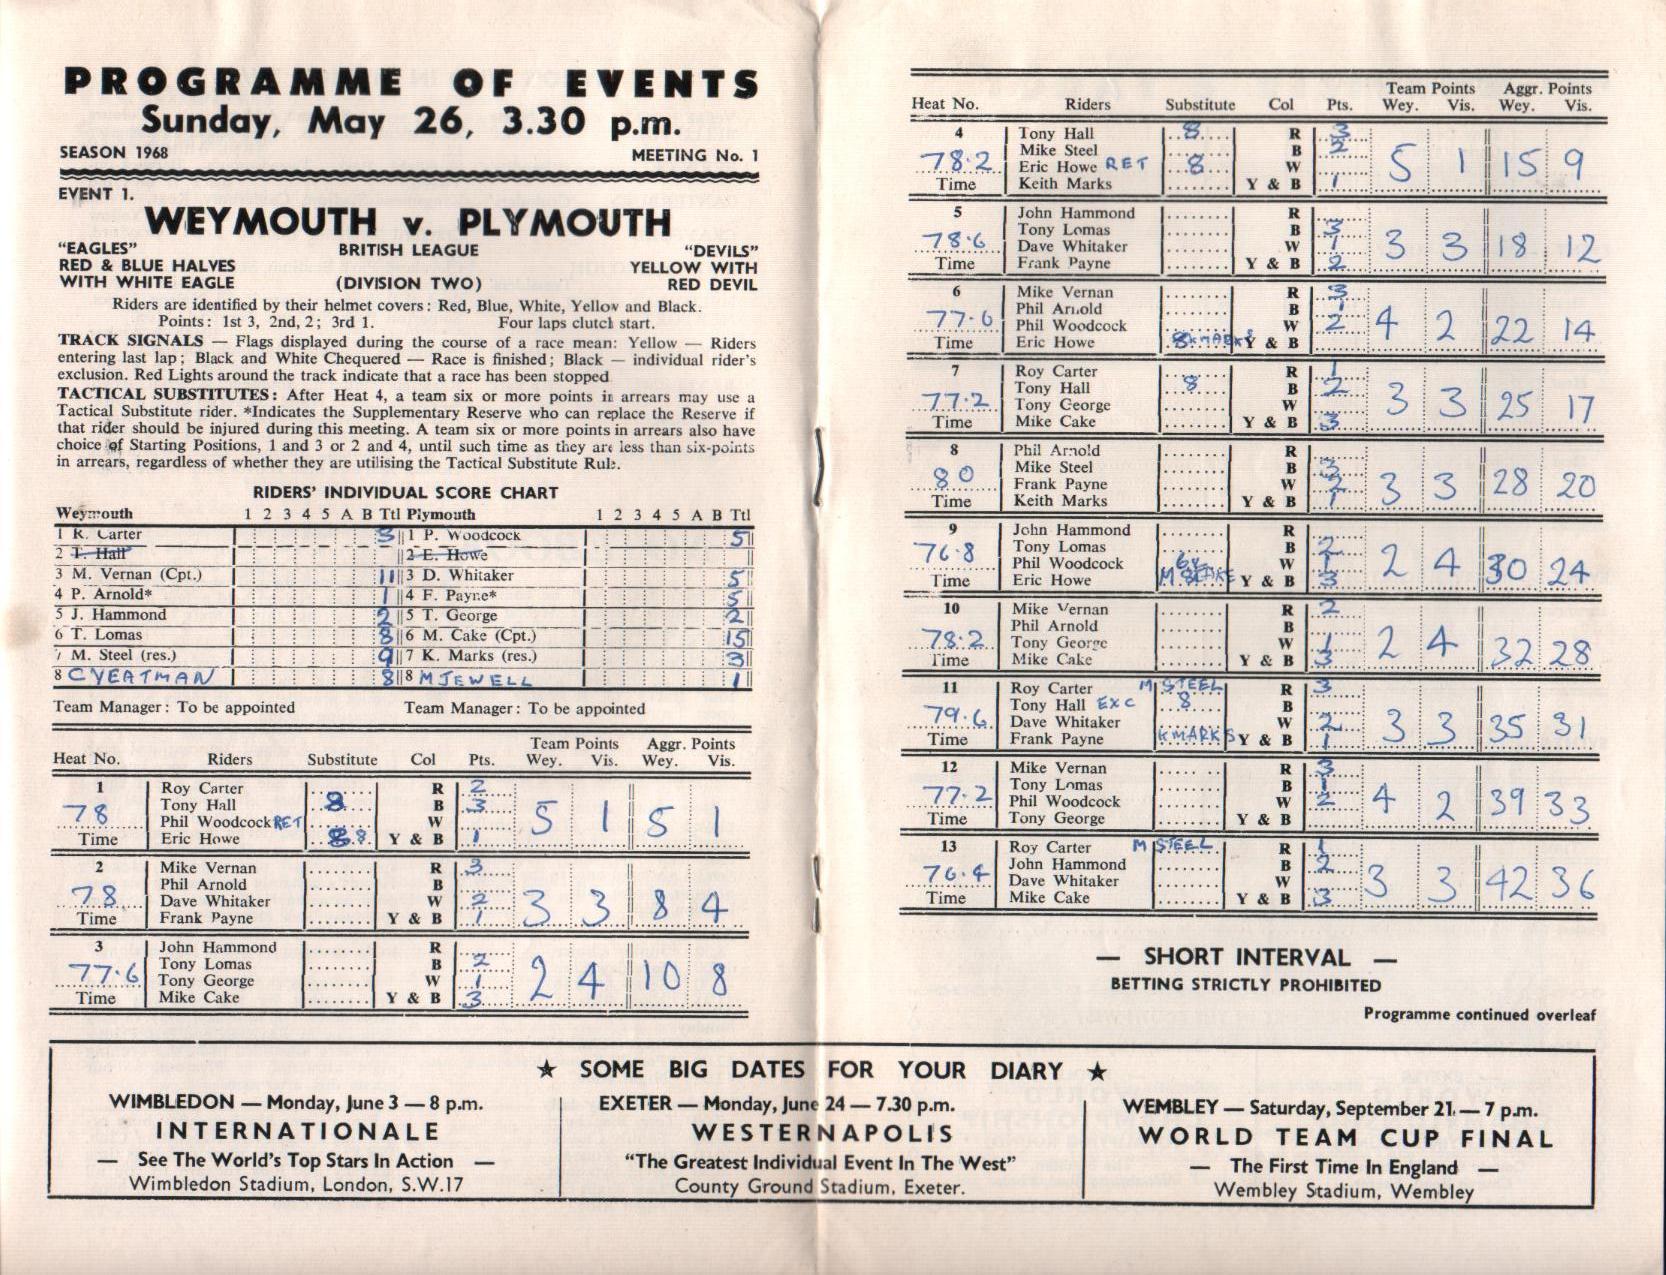 PROGRAMME OF EVENTS
Sunday, May 26, 3.30 p.m.
SEASON 1968 MEETING No. 1
EVENT 1.
WEYMOUTH v. PLYMOUTH
"EAGLES" BRITISH LEAGUE "DEVILS"
RED & BLUE HALVES YELLOW WITH
WITH WHITE EAGLE (DIVISION TWO) RED DEVIL
Riders are identified by their helmet covers: Red, Blue, White, Yellow and Black.
Points: 1st 3, 2nd, 2; 3rd 1. Four laps clutch start.
TRACK SIGNALS — Flags displayed during the course of a race mean: Yellow — Riders
entering last lap; Black and White Chequered — Race is finished; Black — individual rider's
exclusion. Red Lights around the track indicate that a race has been stopped
TACTICAL SUBSTITUTES: After Heat 4, a team six or more points in arrears may use a
Tactical Substitute rider. *Indicates the Supplementary Reserve who can replace the Reserve if
that rider should be injured during this meeting. A team six or more points in arrears also have
choice of Starting Positions, 1 and 3 or 2 and 4, until such time as they are less than six-points
in arrears, regardless of whether they are utilising the Tactical Substitute Rule.
RIDERS' INDIVIDUAL SCORE CHART
Weymouth 1 2 3 4 5 A B Ttl Plymouth 1 2 3 4 5 A B Ttl
1 R. Carter 3 1 P. Woodcock 5
2 T. Hall 2 E. Howe
3 M. Vernan (Cpt.) 11 3 D. Whitaker 5
4 P. Arnold* 1 4 F. Payne* 5
5 J. Hammond 2 5 T. George 2
6 T. Lomas 8 6 M. Cake (Cpt.) 15
7 M. Steel (res.) 9 7 K. Marks (res.) 3
8 C YEATMAN 8 8 M JEWELL 1
Team Manager: To be appointed Team Manager: To be appointed
Team Points Aggr. Points
Heat No. Riders Substitute Col Pts. Wey. Vis. Wey. Vis.
1 Roy Carter R 2
78 Tony Hall 8 B 3 5 1 5 1
Phil Woodcock RET W
Time Eric Howe 8 Y & B 1
2 Mike Vernan R 3
78 Phil Arnold B 3 3 8 4
Dave Whitaker W 2
Time Frank Payne Y & B 1
3 John Hammond R
77.6 Tony Lomas B 2 2 4 10 8
Tony George W 1
Time Mike Cake Y & B 3
Team Points Aggr. Points
Heat No. Riders Substitute Col Pts. Wey. Vis. Wey. Vis.
4 Tony Hall 8 R 3
78.2 Mike Steel B 2 5 1 15 9
Eric Howe RET 8 W
Time Keith Marks Y & B 1
5 John Hammond R
78.6 Tony Lomas B 3 3 3 18 12
Dave Whitaker W 1
Time Frank Payne Y & B 2
6 Mike Vernan R 3
77.6 Phil Arnold B 1 4 2 22 14
Phil Woodcock W 2
Time Eric Howe K MARKS Y & B
7 Roy Carter R 1
77.2 Tony Hall 8 B 2 3 3 25 17
Tony George W
Time Mike Cake Y & B 3
8 Phil Arnold R
80 Mike Steel B 3 3 3 28 20
Frank Payne W 2
Time Keith Marks Y & B 1
9 John Hammond R
76.8 Tony Lomas B 2 2 4 30 24
Phil Woodcock W 1
Time Eric Howe M CAKE Y & B 3
10 Mike Vernan R 2
78.2 Phil Arnold B 2 4 32 28
Tony George W 1
Time Mike Cake Y & B 3
11 Roy Carter M STEEL R 3
79.6 Tony Hall EXC 8 B 3 3 35 31
Dave Whitaker W 2
Time Frank Payne K MARKS Y & B 1
12 Mike Vernan R 3
77.2 Tony Lomas B 1 4 2 39 33
Phil Woodcock W 2
Time Tony George Y & B
13 Roy Carter M STEEL R 1
76.4 John Hammond B 2 3 3 42 36
Dave Whitaker W
Time Mike Cake Y & B 3
— SHORT INTERVAL —
BETTING STRICTLY PROHIBITED
Programme continued overleaf
★ SOME BIG DATES FOR YOUR DIARY ★
WIMBLEDON — Monday, June 3 — 8 p.m.
INTERNATIONALE
— See The World's Top Stars In Action —
Wimbledon Stadium, London, S.W.17
EXETER — Monday, June 24 — 7.30 p.m.
WESTERNAPOLIS
"The Greatest Individual Event In The West"
County Ground Stadium, Exeter.
WEMBLEY — Saturday, September 21. — 7 p.m.
WORLD TEAM CUP FINAL
— The First Time In England —
Wembley Stadium, Wembley